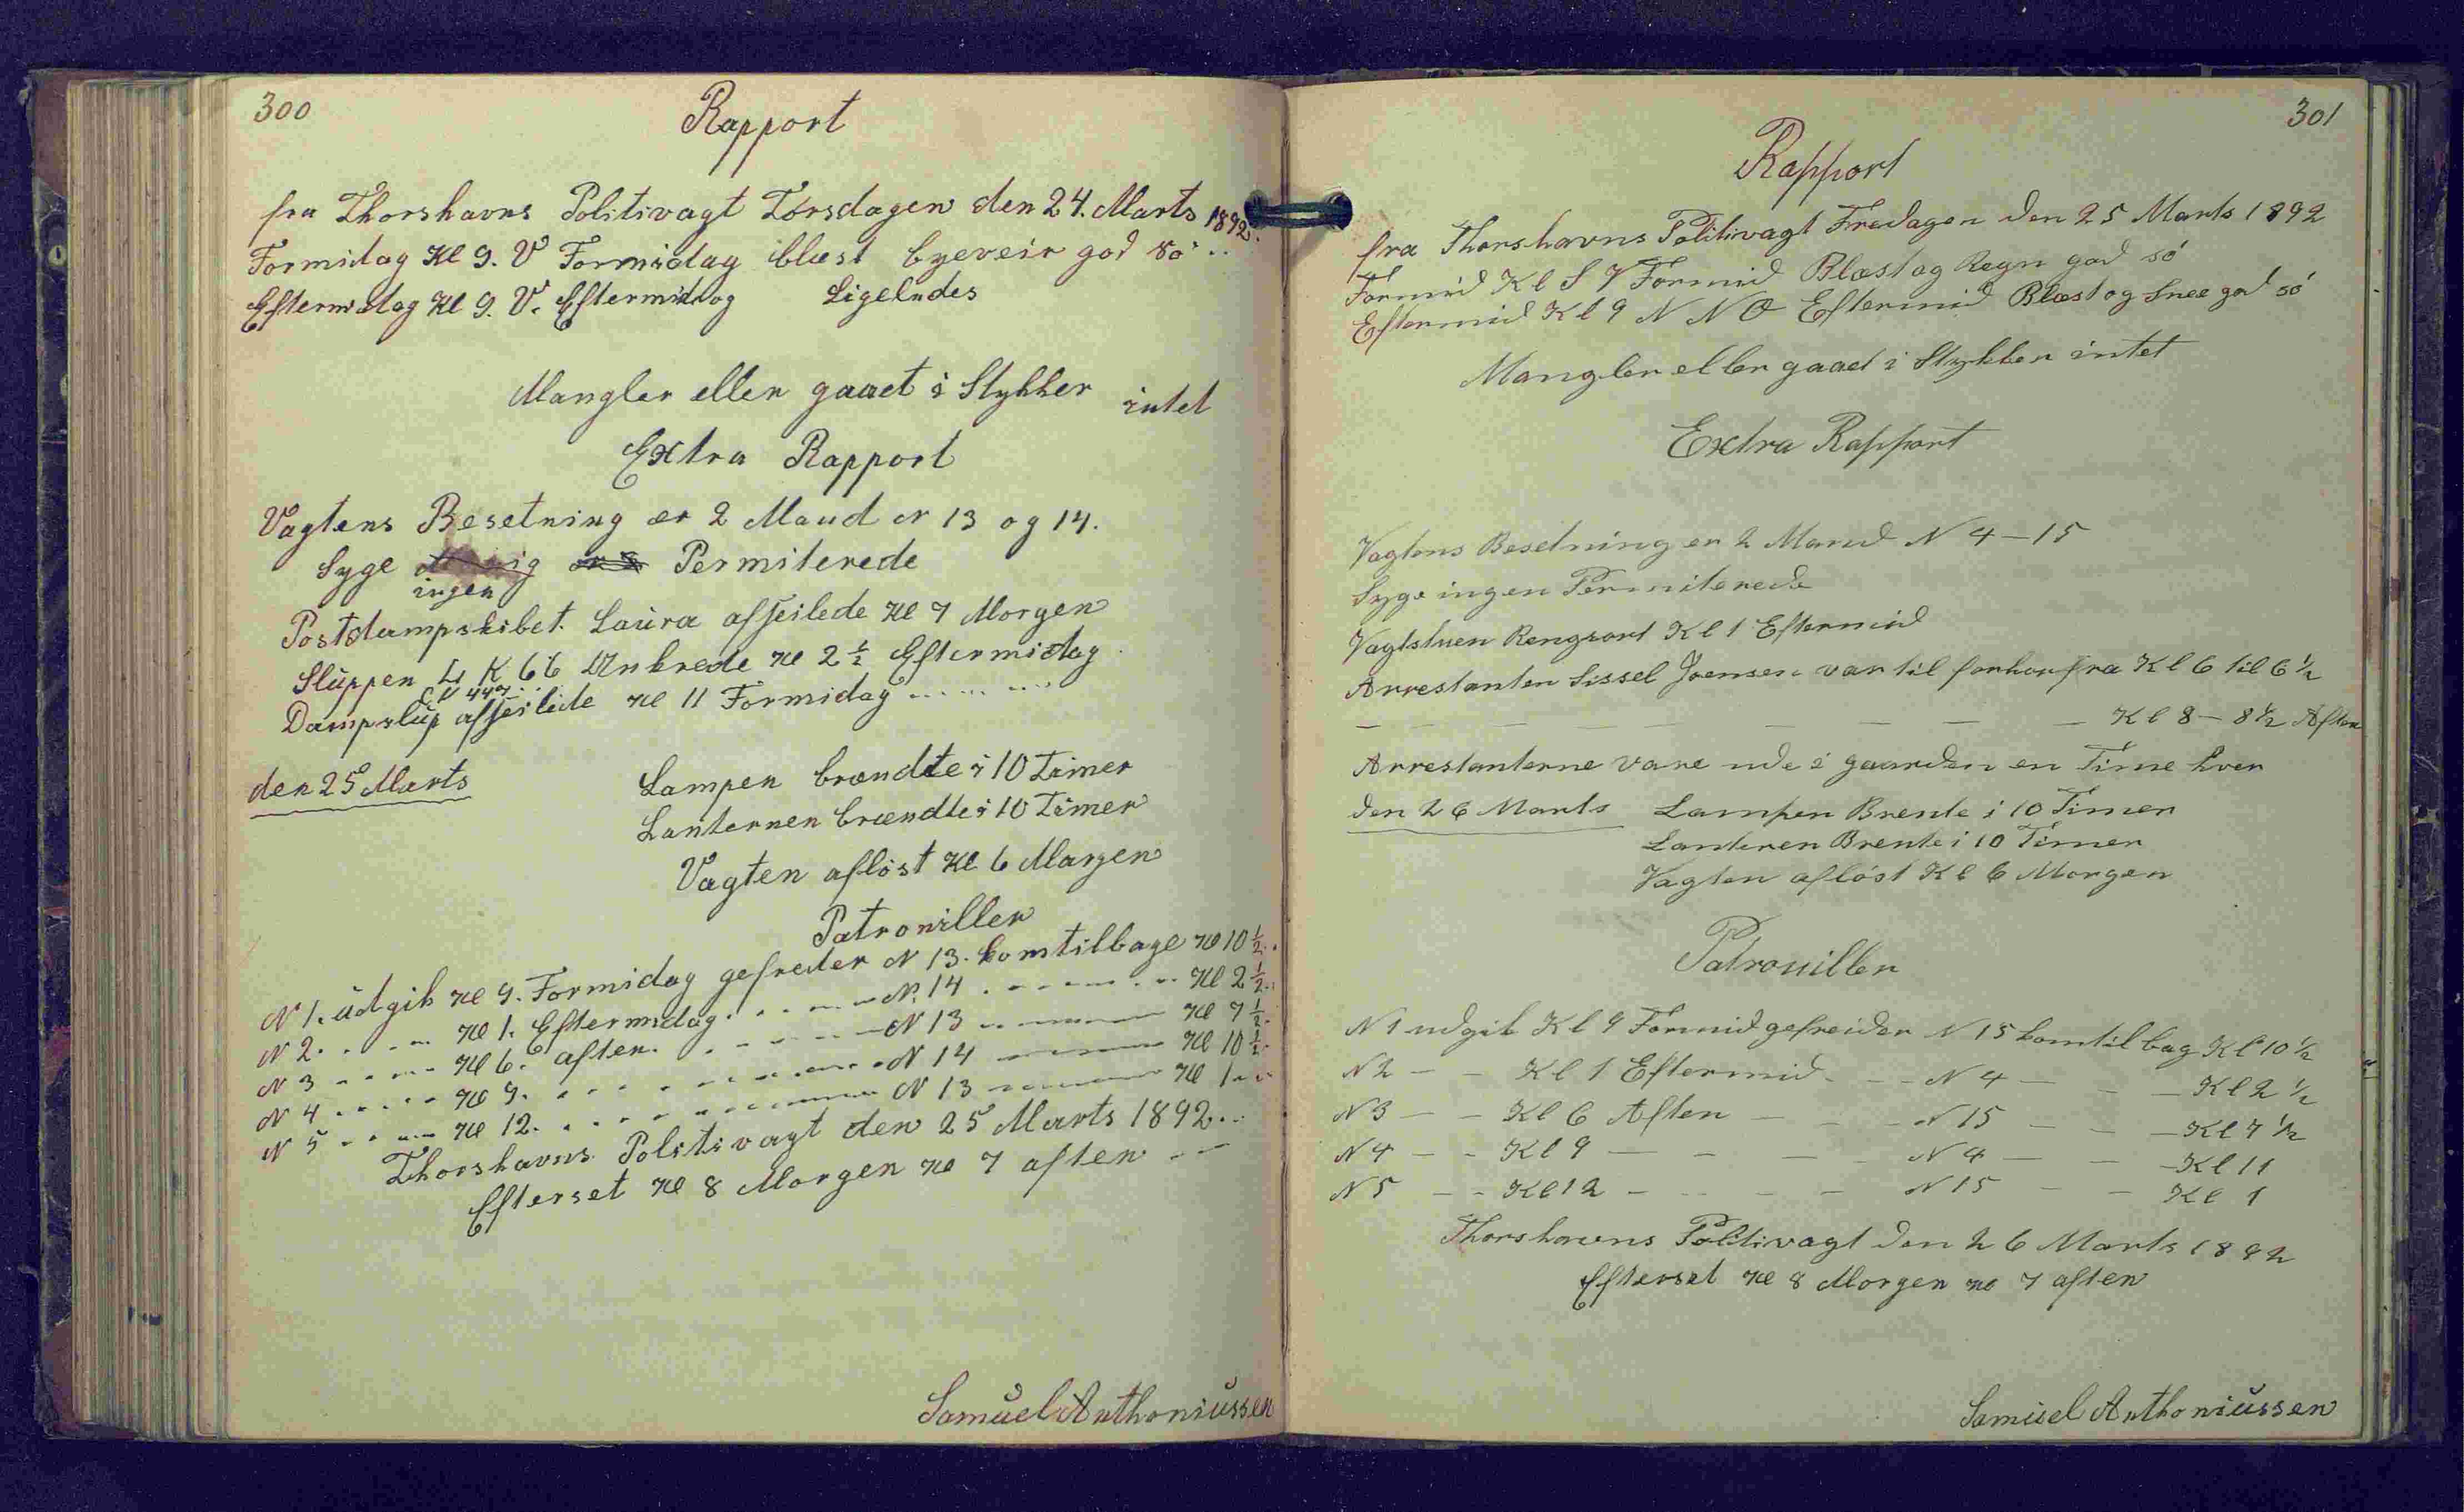 300
Rapport
fra Thorshavns Politivagt Torsdagen den 24. Marts 1892..
Formidag Kl 9. V Formidag blæst byeveir god Sö..
Eftermidag Kl 9. V. Eftermidag Ligeludes
Mangler eller gaaet i Stykker intet
Extra Rapport
Vagtens Besetning er 2 Mand N 13 og 14.
Syge ingen Permiterede
Postdampskibet. Laura afseilede Kl 7 Morgen
Sluppen L K 66 Ankrede Kl 2 1/2 Eftermidag
Dampslup afseilede Kl 11 Formidag
den 25 Marts Lampen brændte i 10 Timer
Lanternen brændte i 10 Timer
Vagten aflöst Kl 6 Morgen
Patroniller
N 1. udgik Kl 9. Formidag gefreder N 13. komtilbage Kl 10 1/2..
N 2. Kl 1. Eftermidag. N. 14 Kl 2 1/2..
N 3 Kl 6. aften. N 13 Kl 7 1/2.
N 4 Kl 9. N 14 Kl 10 1/2.
N 5 Kl 12. N 13 Kl 1..
Thorshavns Politivagt den 25 Marts 1892...
Efterset Kl 8 Morgen Kl 7 aften
Samuel Anthoniussen
301
Rapport
fra Thorshavns Politivagt Fredagen den 25 Marts 1892
Formid Kl S V Formid Blæst og Regn god sö
Eftermid Kl 9 N N O Eftermid Blæst og Snee god sö
Mangler eller gaaet i Stykker intet
Extra Rapport
Vagtens Besetning er 2 Mand N 4 – 15
Syge ingen Permiterede
Vagtstuen Rengjort Kl 1 Eftermid
Arrestanten Sissel Joensen var til forhor fra Kl 6 til 6 1/2
— — — — — — — Kl 8 – 8 1/2 Aften
Arrestanterne vare ude i gaarden en Time hver
den 26 Marts Lampen Brente i 10 Timer
Lanteren Brente i 10 Timer
Vagten aflöst Kl 6 Morgen
Patrouiller
N 1 udgik Kl 9 Formid gefreider N 15 komtilbag Kl 10 1/2
N 2 — — Kl 1 Eftermid — — N 4 — — — Kl 2 1/2
N 3 — — Kl 6 Aften — — — N 15 — — — Kl 7 1/2
N 4 — — Kl 9 — — — — N 4 — — — Kl 11
N 5 — — Kl 12 — — — — N 15 — — Kl 1
Thorshavns Politivagt den 26 Marts 1892
Efterset Kl 8 Morgen Kl 7 aften
Samuel Anthoniussen